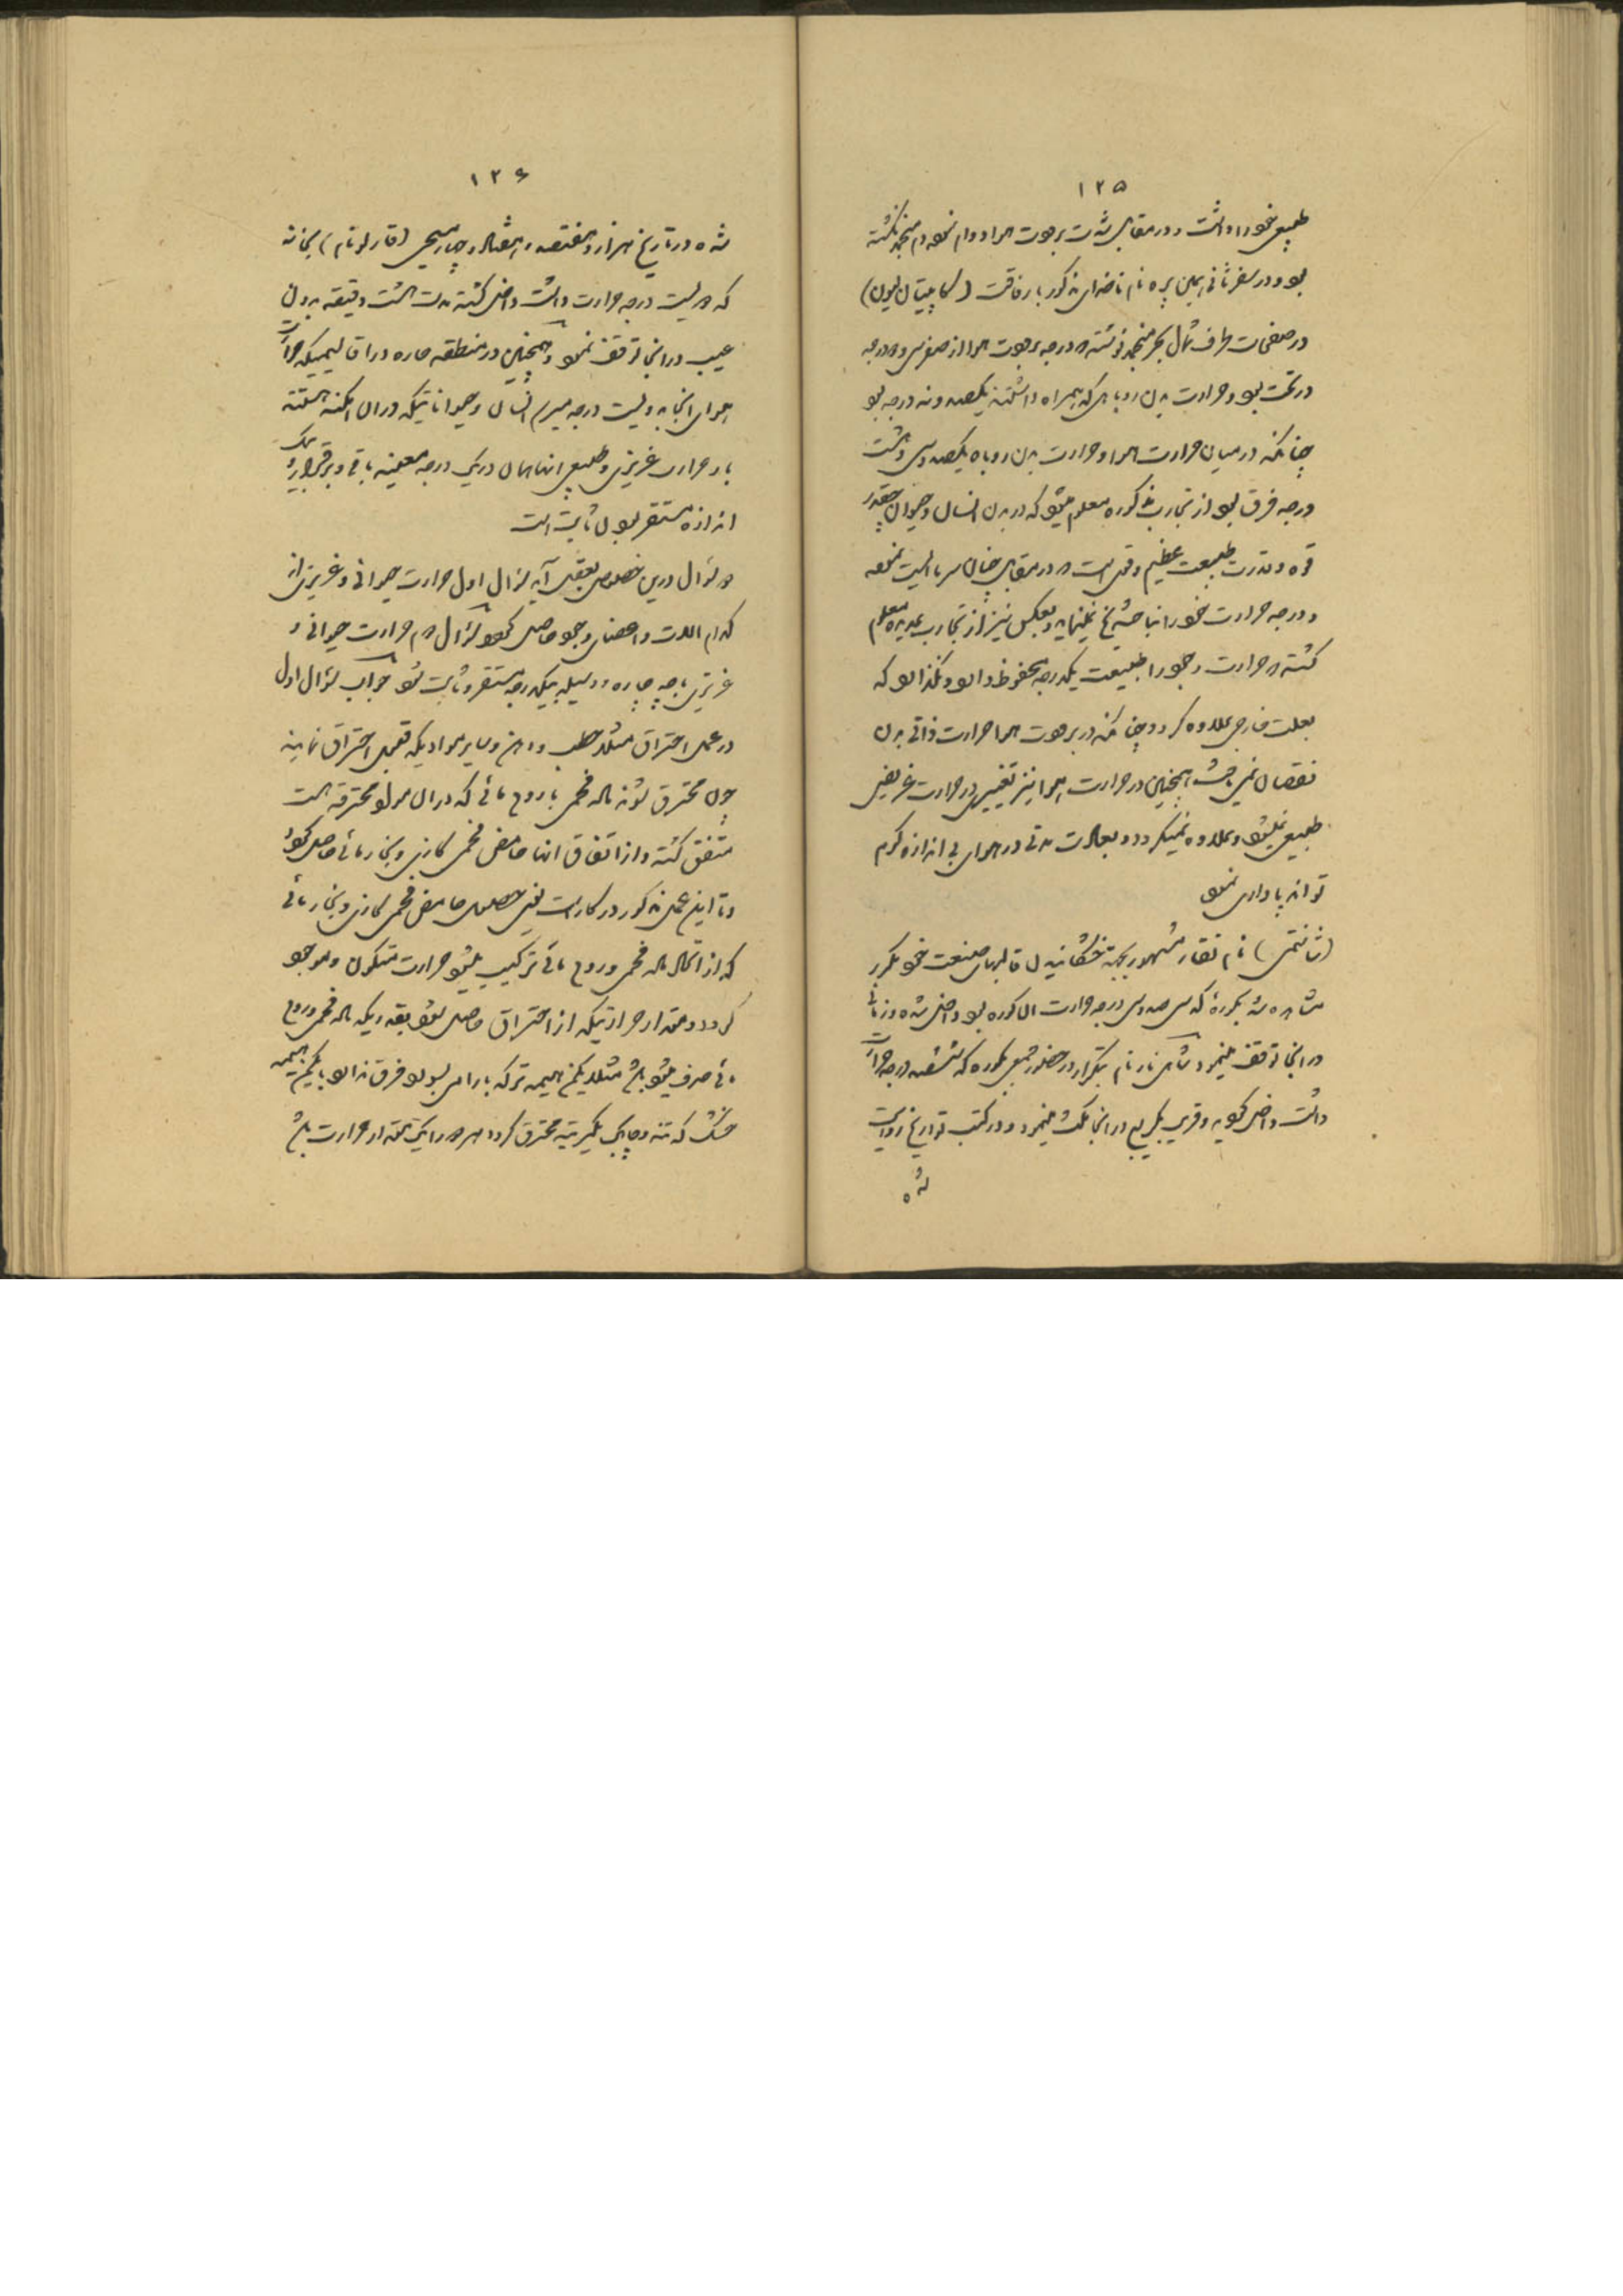 ۱۲۵
طبیعی خود را داشت و در مقابل شدت برودت هوا دوام نموده منجمد نگشته
بود و در سفر ثانی همین پره نام ناخدای مذکور با رفاقت (کاپیتان لیون)
در صفحات طرف شمال بحر منجمد نوشته درجه برودت هوا از صفر سی و درجه
در تحت بود و حرارت بدن روباهی که همراه داشتند یکصد و نه درجه بود
چنانکه در میان حرارت هوا و حرارت بدن روباه یکصد و سی و هشت
درجه فرق بود از تجارب مذکوره معلوم میشود که در بدن انسان و حیوان چقدر
قوه و قدرت طبیعت عظیم و قوی است در مقابل چنان سرما نموده
و درجه حرارت خود را نمینماید و بعکس نیز از تجارب عدیده معلوم
گشته حرارت وجود را طبیعت یکدرجه محفوظ دارد و نگذارد که
بعلت خارجی علاوه گردد چنانکه در برودت هوا حرارت ذاتی بدن
نقصان نمی باشد همچنین در حرارت هوا نیز تغییر در حرارت غریزی
طبیعی نمیشود و علاوه نمیگردد و بعلاوه مدتی در هوای بی اندازه گرم
تواند پاداری نمود
نام نقار مشهور بجهة خشکانیدن قالبهای صنعت خود مکرر
مشاهده شد بکوره که سی صد و سی درجه حرارت آن کوره بود داخل شده و زمانی
در آنجا توقف مینمود نام بتکرار در حضور جمعی بکوره که ششصد درجه حرارت
داشت داخل گردیده و قریب بکربع در آنجا مکث مینمود و در کتب تواریخ روایت
شده
۱۲۶
شده در تاریخ هزار و هفتصد و هفتاد و چهار مسیحی نام) بخانه
که دویست درجه حرارت داشت داخل گشته مدت هشت دقیقه بدون
عیب در آنجا توقف نمود و همچنین در منطقه حاره در اقالیمیکه حرارت
هوای آنجا بدویست درجه میرسد انسان و حیواناتیکه در آن امکنه هستند
باز حرارت غریزی و طبیعی آنها همان در یک درجه معینه باقی و برقرار و بیک
اندازه مستقر بودن ثابت است
دو سؤال درین خصوص بعقل آید سؤال اول حرارت حیوانی و غریزی از
کدام آلات و اعضای وجود حاصل گردد سؤال دوم حرارت حیوانی و
غریزی با چه چاره و وسیله بیکدرجه مستقر و ثابت شود جواب سؤال اول
در عمل احتراق مثلا حطب و دهن و سایر موادیکه قبول احتراق نمایند
چون محترق شوند ماده فحمی با روح مائی که در آن مواد محترقه است
متفق گشته و از اتفاق آنها حامض فحمی گازی و بخار مائی حاصل گردد
و تا این عمل مذکور در کار است یعنی حصول حامض فحمی گازی و بخار مائی
که از اتحاد ماده فحمی و روح مائی ترکیب میشود حرارت متکون و موجود
گردد و مقدار حرارتیکه از احتراق حاصل شود بقدریکه ماده فحمی و روح
مائی صرف میشود باشد مثلا یکمن هیمه تر که بآرامی بسوزد فرق ندارد با یکمن هیمه
خشک که تند و چابک بیکمرتبه محترق گردد هر دو را یک مقدار حرارت باشد